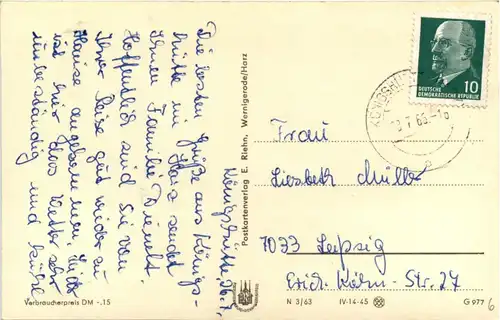 Königshütte, 26.7.
Die besten Grüße aus Königs-
hütte im Harz sendet
Ihnen Familie
Hoffentlich sind Sie von
Ihrer Reise gut wieder zu
Hause angekommen. Hier
ist hier das Wetter sehr
unbeständig und kühl
Verbraucherpreis DM -.15
Postkartenverlag E. Riehn, Wernigerode/Harz
DEUTSCHE
DEMOKRATISCHE REPUBLIK
10
Frau
Liesbeth Müller
7033 Leipzig
Erich-Köhn-Str. 27
N 3/63 IV-14-45 G 977
6